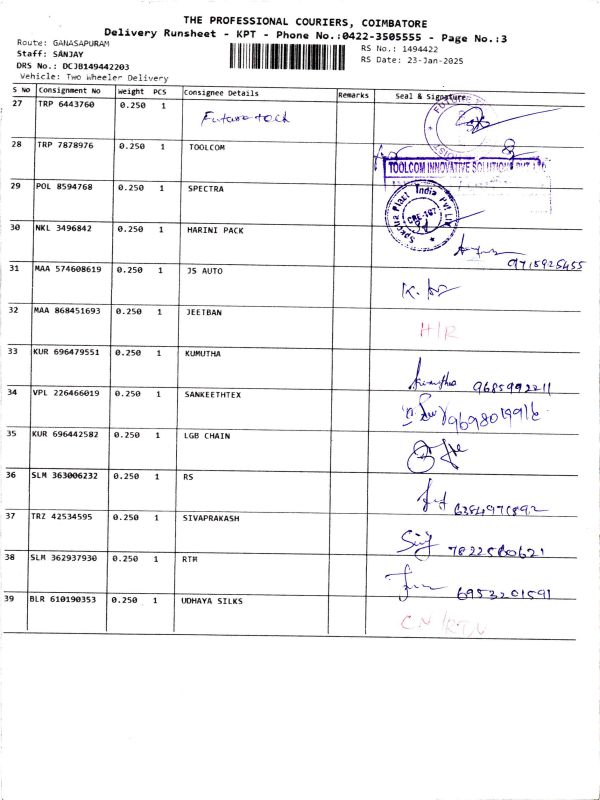 THE PROFESSIONAL COURIERS, COIMBATORE
Delivery Runsheet - KPT - Phone No.:0422-3505555 - Page No.:3
Route: GANASAPURAM
RS No.: 1494422
Staff: SANJAY
RS Date: 23-Jan-2025
DRS No.: DCJB149442203
Vehicle: Two Wheeler Delivery
S No Consignment No Weight PCS Consignee Details Remarks Seal & Signature
27 TRP 6443760 0.250 1 Future tech
28 TRP 7878976 0.250 1 TOOLCOM
TOOLCOM INNOVATIVE SOLUTIONS PVT LTD
29 POL 8594768 0.250 1 SPECTRA
Spectra Plast India Pvt Ltd
30 NKL 3496842 0.250 1 HARINI PACK
9715925455
31 MAA 574608619 0.250 1 JS AUTO
32 MAA 868451693 0.250 1 JEETBAN H/R
33 KUR 696479551 0.250 1 KUMUTHA
9685992211
34 VPL 226466019 0.250 1 SANKEETHTEX
35 KUR 696442582 0.250 1 LGB CHAIN
36 SLM 363006232 0.250 1 RS
37 TRZ 42534595 0.250 1 SIVAPRAKASH
38 SLM 362937930 0.250 1 RTM
6953201591
39 BLR 610190353 0.250 1 UDHAYA SILKS C.N/RTN